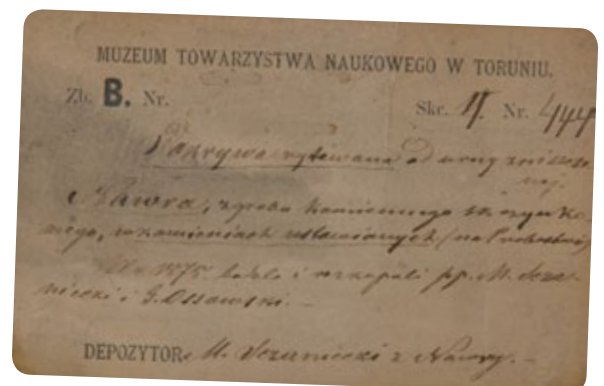 MUZEUM TOWARZYSTWA NAUKOWEGO W TORUNIU.
Zb. B. Nr. Skr. II. Nr. 444
Pokrywa rytowana od urny zniszczo-
nej.
Nawra, z grobu kamiennego skrzynko-
wego, w kamieniach ustawianych (na Probostwie)
1875 i rozkopali pp. M. Scza-
niecki i G. Ossowski. –
DEPOZYTOR M. Sczaniecki z Nawry. –